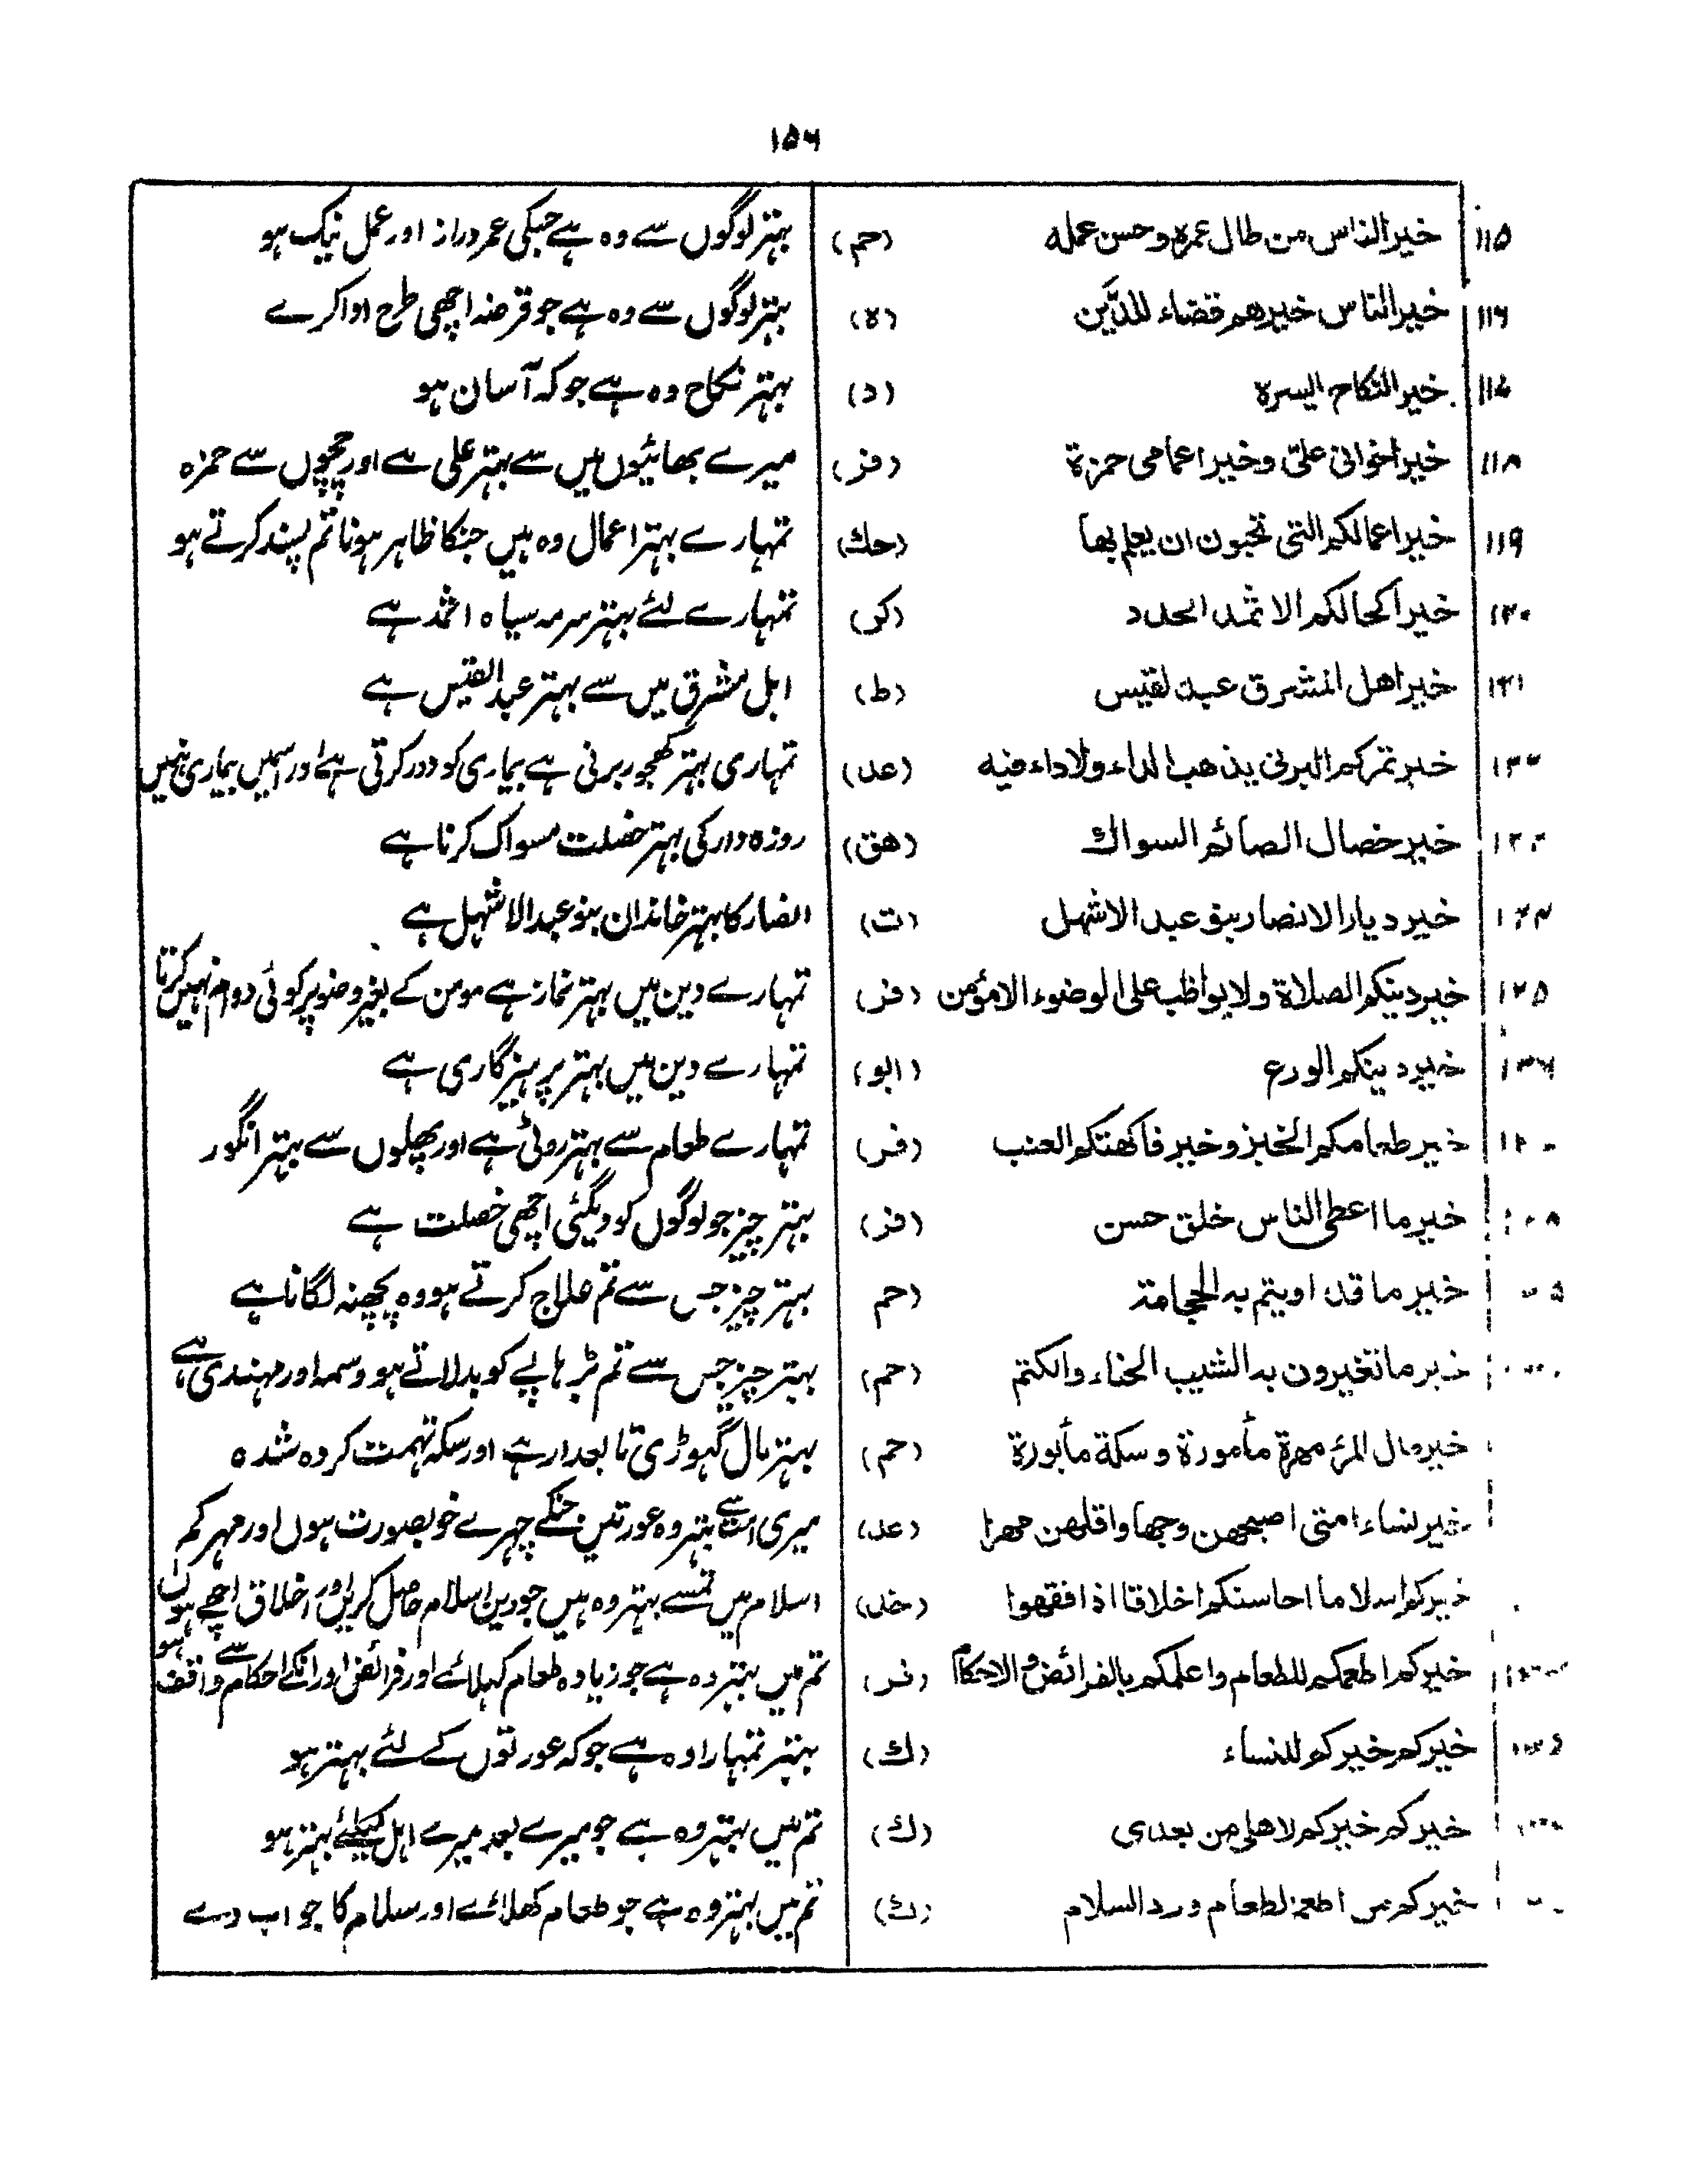 ۱۵۶
۱۱۵ خیر الناس من طال عمره وحسن عمله (حم) بہتر لوگوں سے وہ ہے جسکی عمر دراز اور عمل نیک ہو
۱۱۶ خیر الناس خیرهم قضاء للدَّین (ه) بہتر لوگوں سے وہ ہے جو قرضہ اچھی طرح ادا کرے
۱۱۷ خیر النکاح الیسره (د) بہتر نکاح وہ ہے جو کہ آسان ہو
۱۱۸ خیر اخوانی علیّ وخیر اعمامی حمزة (فر) میرے بھائیوں میں سے بہتر علی ہے اور چچوں سے حمزہ
۱۱۹ خیر اعمالکم التی تحبون ان یعلم بها (حك) تمہارے بہتر اعمال وہ ہیں جنکا ظاہر ہونا تم پسند کرتے ہو
۱۲۰ خیر اکحالکم الاثمد (کر) تمہارے لئے بہتر سرمہ سیاہ اثمد ہے
۱۲۱ خیر اهل المشرق عبد لقیس (ط) اہل مشرق میں سے بہتر عبد القیس ہے
۱۲۲ خیر تمرکم البرنی یذهب الداء ولا داء فیه (عد) تمہاری بہتر کھجور برنی ہے بیماری کو دور کرتی ہے اور اسمیں بیماری نہیں
۱۲۳ خیر خصال الصائم السواك (هق) روزہ دار کی بہتر خصلت مسواک کرنا ہے
۱۲۴ خیر دیار الانصار بنو عبد الاشهل (ت) انصار کا بہتر خاندان بنو عبد الاشہل ہے
۱۲۵ خیر دینکم الصلاة ولا یواظب علی الوضوء الا مؤمن (فر) تمہارے دین میں بہتر نماز ہے مومن کے بغیر وضو پر کوئی دوام نہیں کرتا
۱۲۶ خیر دینکم الورع (ابو) تمہارے دین میں بہتر پرہیزگاری ہے
خیر طعامکم الخبز وخیر فاکهتکم العنب (فر) تمہارے طعام سے بہتر روٹی ہے اور پھلوں سے بہتر انگور
خیر ما اعطی الناس خلق حسن (فر) بہتر چیز جو لوگوں کو دیگئی اچھی خصلت ہے
خیر ما تداویتم به الحجامة (حم بہتر چیز جس سے تم علاج کرتے ہو وہ پچھنہ لگانا ہے
خیر ما تغیرون به الشیب الحناء والکتم (حم) بہتر چیز جس سے تم بڑہاپے کو بدلاتے ہو وسمہ اور مہندی ہے
خیر مال المرء مهرة مأمورة وسکة مأبورة (حم) بہتر مال گہوڑی تابعدار ہے اور سکہ تہمت کردہ شدہ
خیر نساء امتی اصبحهن وجها واقلهن مهرا (عد) میری امت سے بہتر وہ عورتیں جنکے چہرے خوبصورت ہوں اور مہر کم
خیرکم اسلاما احاسنکم اخلاقا اذا فقهوا (خد) اسلام میں تمسے بہتر وہ ہیں جو دین اسلام حاصل کریں اور اخلاق اچھے ہوں
خیرکم اطعمکم للطعام واعلمکم بالفرائض والاحکام (فر) تم میں بہتر وہ ہے جو زیادہ طعام کہلائے اور فرائض اور انکے احکام سے واقف ہو
خیرکم خیرکم للنساء (ك) بہتر تمہارا وہ ہے جو کہ عورتوں کے لئے بہتر ہو
خیرکم خیرکم لاهلی من بعدی (ك) تم میں بہتر وہ ہے جو میرے بعد میرے اہل کیلئے بہتر ہو
خیرکم من اطعم الطعام ورد السلام (ك) تم میں بہتر وہ ہے جو طعام کھلائے اور سلام کا جواب دے